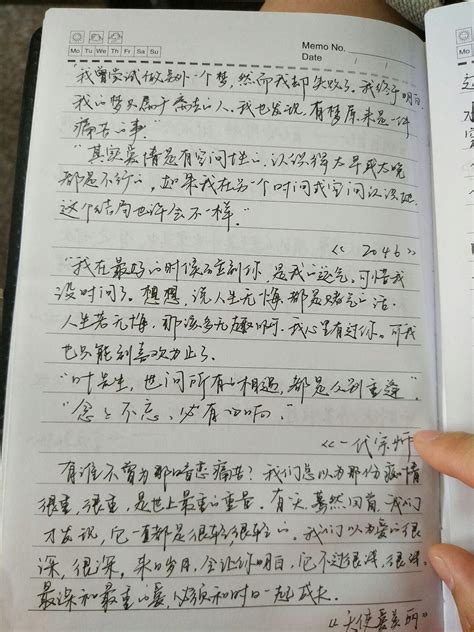 Mo Tu We Th Fr Sa Su
Memo No.
Date / /
"我曾尝试做另外一个梦，然而我却失败了。我终于明白，
我的梦只属于离去的人。我也发现，有梦原来是一件
痛苦的事"
"其实爱情是有空间性的，认识得太早或太晚
都是不行的，如果我在另一个时间或空间认识她
这个结局也许会不一样。"
《2046》
"我在最好的时候碰到你，是我的运气，可惜我
没时间了。想想，说人生无悔都是赌气的话。
人生若无悔，那该多无趣啊。我心里有过你。可我
也只能到喜欢为止了。
"叶先生，世间所有的相遇，都是久别重逢"
"念念不忘，必有回响。"
《一代宗师
有谁不曾为那暗恋痛苦？我们总以为那份痴情
很重，很重，是世上最重的重量。有天，蓦然回首，我们
才发现，它一直都是很轻很轻的。我们以为爱的很
深，很深，来日岁月，会让你明白，它不过很浅，很浅。
最深和最重的爱，必须和时日一起成长。
《天使爱美丽》